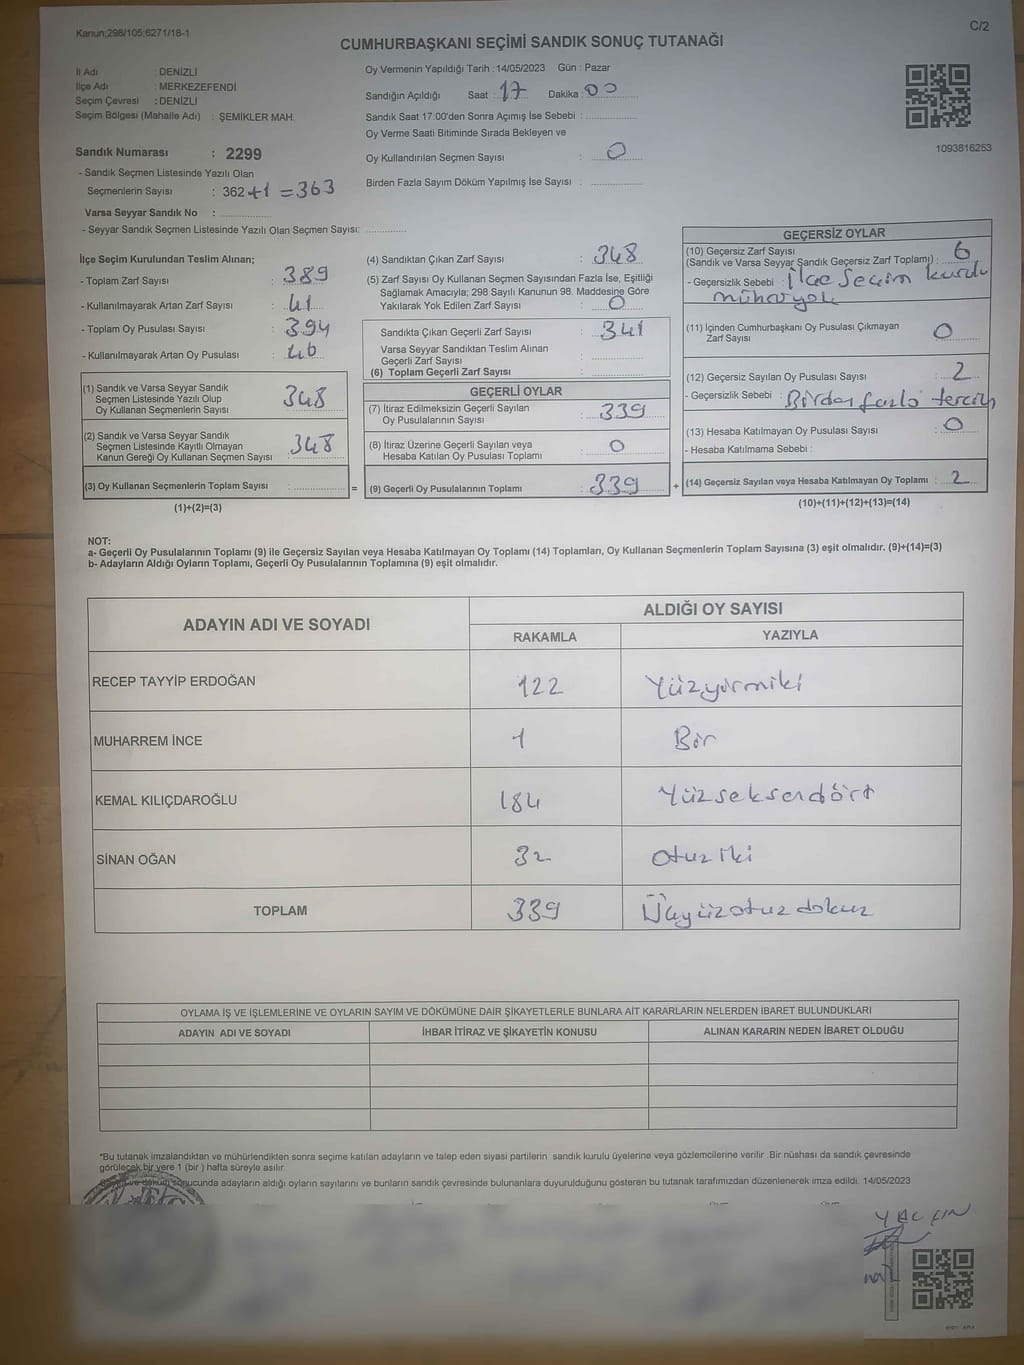 Kanun;298/105;6271/18-1
C/2
CUMHURBAŞKANI SEÇİMİ SANDIK SONUÇ TUTANAĞI
İl Adı : DENİZLİ
İlçe Adı : MERKEZEFENDİ
Seçim Çevresi : DENİZLİ
Seçim Bölgesi (Mahalle Adı) : ŞEMİKLER MAH.
Sandık Numarası : 2299
- Sandık Seçmen Listesinde Yazılı Olan
Seçmenlerin Sayısı : 362 +1 = 363
Varsa Seyyar Sandık No :
- Seyyar Sandık Seçmen Listesinde Yazılı Olan Seçmen Sayısı:
Oy Vermenin Yapıldığı Tarih :14/05/2023 Gün : Pazar
Sandığın Açıldığı Saat : 17 Dakika : 00
Sandık Saat 17:00'den Sonra Açımış İse Sebebi :
Oy Verme Saati Bitiminde Sırada Bekleyen ve
Oy Kullandırılan Seçmen Sayısı : 0
Birden Fazla Sayım Döküm Yapılmış İse Sayısı :
1093816253
İlçe Seçim Kurulundan Teslim Alınan;
- Toplam Zarf Sayısı : 389
- Kullanılmayarak Artan Zarf Sayısı : 41
- Toplam Oy Pusulası Sayısı : 394
- Kullanılmayarak Artan Oy Pusulası : 46
(1) Sandık ve Varsa Seyyar Sandık
Seçmen Listesinde Yazılı Olup
Oy Kullanan Seçmenlerin Sayısı : 348
(2) Sandık ve Varsa Seyyar Sandık
Seçmen Listesinde Kayıtlı Olmayan
Kanun Gereği Oy Kullanan Seçmen Sayısı : 348
(3) Oy Kullanan Seçmenlerin Toplam Sayısı :
(1)+(2)=(3)
=
(4) Sandıktan Çıkan Zarf Sayısı : 348
(5) Zarf Sayısı Oy Kullanan Seçmen Sayısından Fazla İse, Eşitliği
Sağlamak Amacıyla; 298 Sayılı Kanunun 98. Maddesine Göre
Yakılarak Yok Edilen Zarf Sayısı : 0
Sandıkta Çıkan Geçerli Zarf Sayısı : 341
Varsa Seyyar Sandıktan Teslim Alınan
Geçerli Zarf Sayısı :
(6) Toplam Geçerli Zarf Sayısı :
GEÇERLİ OYLAR
(7) İtiraz Edilmeksizin Geçerli Sayılan
Oy Pusulalarının Sayısı : 339
(8) İtiraz Üzerine Geçerli Sayılan veya
Hesaba Katılan Oy Pusulası Toplamı : 0
(9) Geçerli Oy Pusulalarının Toplamı : 339
+
GEÇERSİZ OYLAR
(10) Geçersiz Zarf Sayısı
(Sandık ve Varsa Seyyar Sandık Geçersiz Zarf Toplamı) : 6
- Geçersizlik Sebebi : İlçe Seçim kurulu
mührü yok
(11) İçinden Cumhurbaşkanı Oy Pusulası Çıkmayan
Zarf Sayısı : 0
(12) Geçersiz Sayılan Oy Pusulası Sayısı : 2
- Geçersizlik Sebebi : Birden fazla tercih
(13) Hesaba Katılmayan Oy Pusulası Sayısı : 0
- Hesaba Katılmama Sebebi :
(14) Geçersiz Sayılan veya Hesaba Katılmayan Oy Toplamı : 2
(10)+(11)+(12)+(13)=(14)
NOT:
a- Geçerli Oy Pusulalarının Toplamı (9) ile Geçersiz Sayılan veya Hesaba Katılmayan Oy Toplamı (14) Toplamları, Oy Kullanan Seçmenlerin Toplam Sayısına (3) eşit olmalıdır. (9)+(14)=(3)
b- Adayların Aldığı Oyların Toplamı, Geçerli Oy Pusulalarının Toplamına (9) eşit olmalıdır.
ADAYIN ADI VE SOYADI
ALDIĞI OY SAYISI
RAKAMLA YAZIYLA
RECEP TAYYİP ERDOĞAN 122 Yüzyirmiki
MUHARREM İNCE 1 Bir
KEMAL KILIÇDAROĞLU 184 Yüzseksendört
SİNAN OĞAN 32 otuz iki
TOPLAM 339 Üçyüzotuz dokuz
OYLAMA İŞ VE İŞLEMLERİNE VE OYLARIN SAYIM VE DÖKÜMÜNE DAİR ŞİKAYETLERLE BUNLARA AİT KARARLARIN NELERDEN İBARET BULUNDUKLARI
ADAYIN ADI VE SOYADI İHBAR İTİRAZ VE ŞİKAYETİN KONUSU ALINAN KARARIN NEDEN İBARET OLDUĞU
*Bu tutanak imzalandıktan ve mühürlendikten sonra seçime katılan adayların ve talep eden siyasi partilerin sandık kurulu üyelerine veya gözlemcilerine verilir .Bir nüshası da sandık çevresinde
görülecek bir yere 1 (bir ) hafta süreyle asılır.
Sayım ve döküm sonucunda adayların aldığı oyların sayılarını ve bunların sandık çevresinde bulunanlara duyurulduğunu gösteren bu tutanak tarafımızdan düzenlenerek imza edildi. 14/05/2023